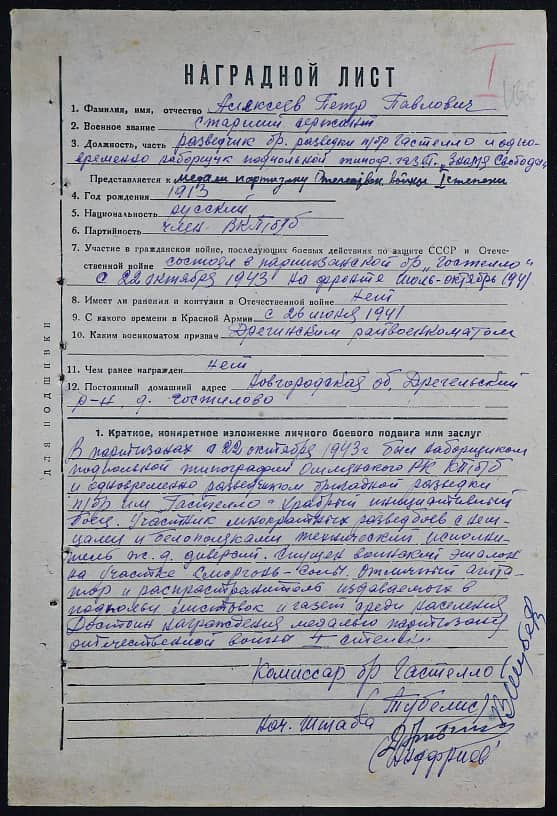 I
НАГРАДНОЙ ЛИСТ
1. Фамилия, имя, отчество Алексеев Петр Павлович
2. Военное звание старший сержант
3. Должность, часть разведчик бр. разведки п/бр Гастелло и одно-
временно наборщик подпольной типогр. газ. "Знамя Свободы"
Представляется к медали партизану Отечествен войны I степени
4. Год рождения 1913
5. Национальность русский
6. Партийность член ВКП(б)
7. Участие в гражданской войне, последующих боевых действиях по защите СССР и Отече-
ственной войне состоял в партизанской бр. "Гостелло"
с 22 октября 1943 на фронте Июль-октябрь 1941
8. Имеет ли ранения и контузии в Отечественной войне нет
9. С какого времени в Красной Армии с 26 июня 1941
10. Каким военкоматом призван Дрегинским райвоенкоматом
11. Чем ранее награжден нет
12. Постоянный домашний адрес Новгородская об. Дрегельский
р-н. д. Гостилово
для подшивки
1. Краткое, конкретное изложение личного боевого подвига или заслуг
В партизанах с 22 октября 1943 г был наборщиком
подпольной типографии Ошмянского РК КП(б)б
и одновременно разведчиком бригадной разведки
п/бр им Гастелло. Храбрый инициативный
боец. Участник многократных разведбоев с нем-
цами и белополяками технический исполни-
тель ж. д. диверсий. Спущен воинский эшалон
на участке Сморгонь-Солы. Отличный агита-
тор и распространитель издаваемой в
подполье листовок и газет среди населения
Достоин награждения медалью партизану
отечественной войны I степени
Комиссар бр Гастелло
(Тубелис)
Нач. Штаба